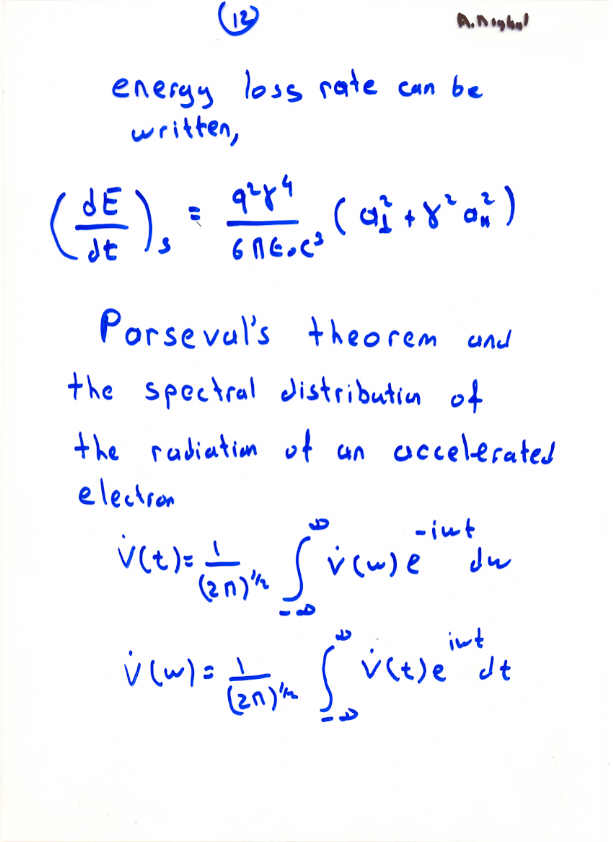 (12)
energy loss rate can be
written,
(dE/dt)s = q²γ⁴/6πε₀c³ (a⊥² + γ² a∥²)
Parseval's theorem and
the spectral distribution of
the radiation of an accelerated
electron
v̇(t) = 1/(2π)^½ ∫_{-∞}^{∞} v̇(ω) e^{-iωt} dω
v̇(ω) = 1/(2π)^½ ∫_{-∞}^{∞} v̇(t) e^{iωt} dt